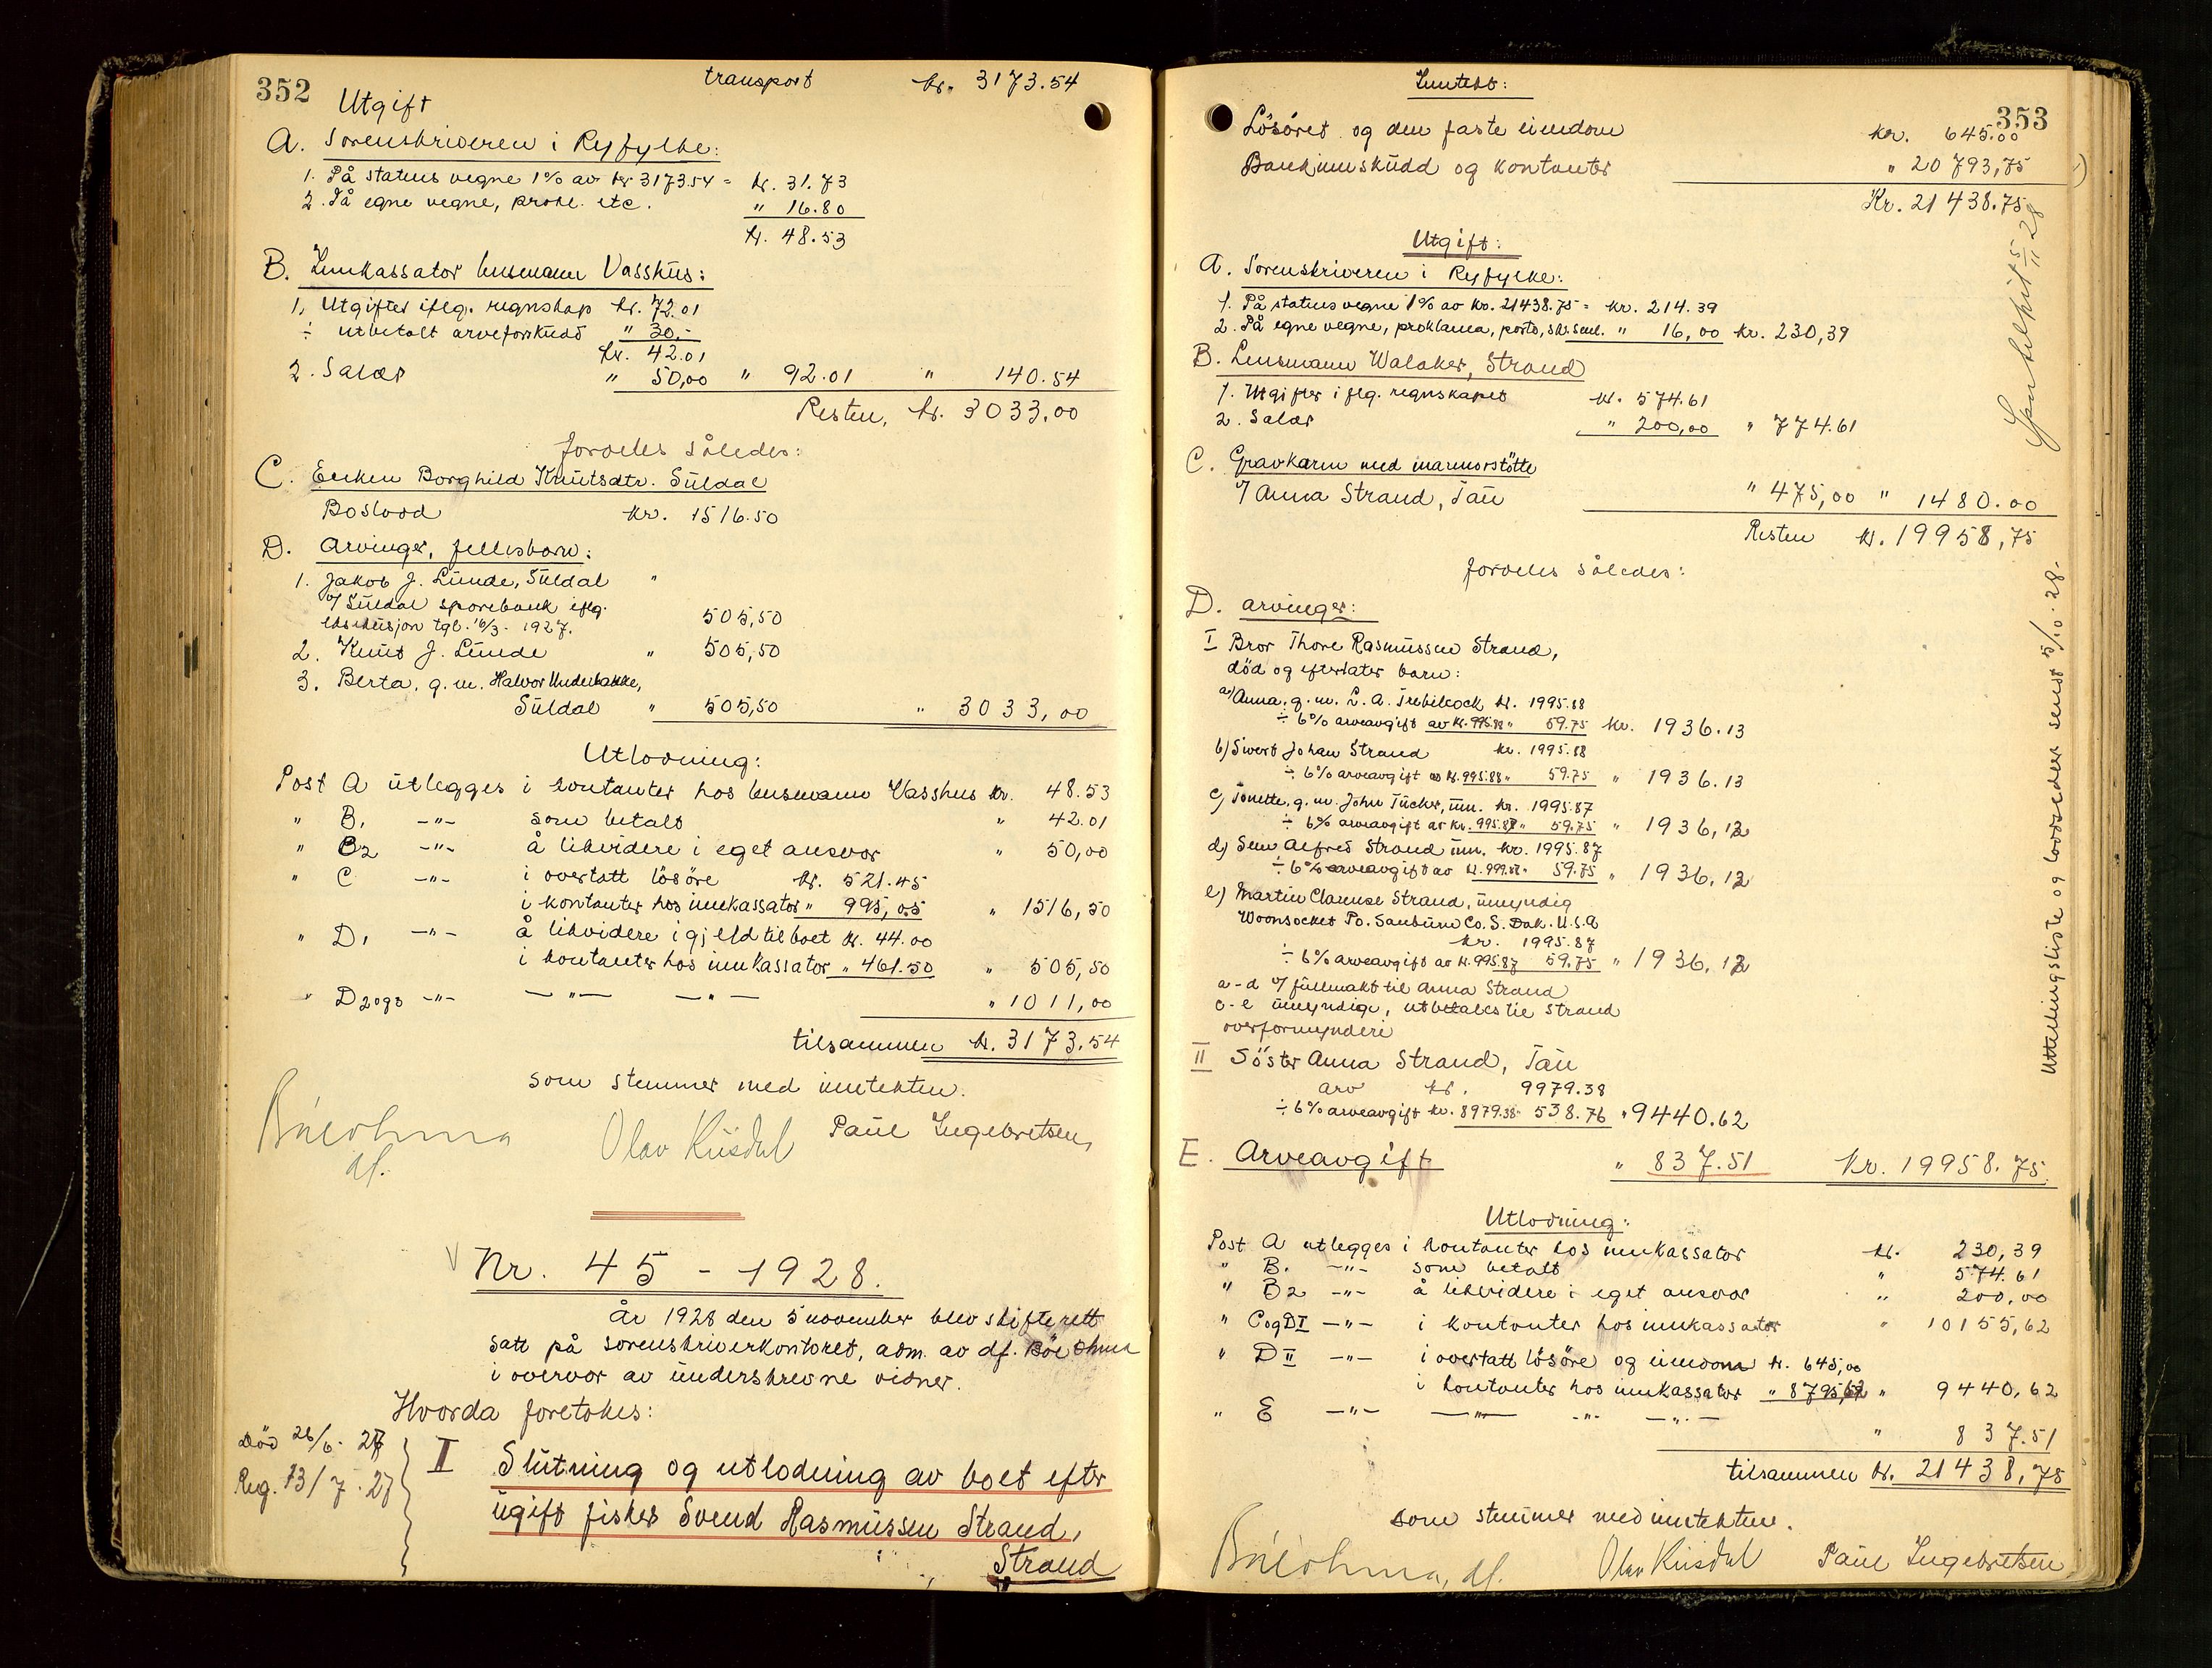 352
transport kr. 3173.54
Utgift
A. Sorenskriveren i Ryfylke:
1. På statens vegne 1% av kr 3173.54 = kr. 31.73
2. På egne vegne, prokl. etc. " 16.80
kr. 48.53
B. Innkassator lensmann Vasshus:
1. Utgifter iflg. regnskap kr. 72.01
÷ utbetalt arveforskudd " 30.-
kr. 42.01
2. Salær " 50,00 " 92.01 " 140.54
Resten, kr. 3033,00
fordeles således:
C. Enken Borghild Knutsdtr. Suldal
Boslodd kr. 1516.50
D. Arvinger, fellesbarn:
1. Jakob J. Lunde, Suldal "
v/ Suldal sparebank iflg.
ekskusjon tgl. 16/3 - 1927. 505,50
2. Knut J. Lunde " 505,50
3. Berta, g.m. Halvor Underbakke,
Suldal " 505,50 " 3033,00
Utlodning:
Post A utlegges i kontanter hos lensmann Vasshus kr. 48.53
" B1 -"- som betalt " 42.01
" B2 -"- å likvidere i eget ansvar " 50,00
" C -"- i overtatt lösöre kr. 521.45
i kontanter hos innkassator " 995,05 " 1516,50
" D1 -"- å likvidere i gjeld til boet kr. 44.00
i kontanter hos innkassator " 461.50 " 505,50
" D2og3 -"- -"- -"- " 1011,00
tilsammen kr. 3173.54
som stemmer med inntekten.
df. Olav Kiisdal Paul Ingebretsen
Nr. 45 - 1928.
År 1928 den 5 november blev skifterett
satt på sorenskriverkontoret, adm. av df. Böe Ohma
i overvær av underskrevne vidner.
Hvorda foretokes:
Död 26/6 - 27
Reg. 13/7 - 27
I Slutning og utlodning av boet efter
ugift fisker Svend Rasmussen Strand,
Strand
353
Inntekt:
Lösöret og den faste eiendom kr. 645.00
Bankinnskudd og kontanter " 20793,75
Kr. 21438.75
Utgift:
A. Sorenskriveren i Ryfylke:
1. På statens vegne 1% av kr. 21438.75 = kr. 214.39
2. På egne vegne, proklama, porto, skr. " 16,00 kr. 230,39
B. Lensmann Walaker, Strand
1. Utgifter iflg. regnskapet kr. 574.61
2. Salær " 200,00 " 774.61
C. Gravkarm med marmorstötte
v/ Anna Strand, Tau " 475,00 " 1480.00
Resten kr. 19958,75
fordeles således:
D. arvinger:
I Bror Thore Rasmussen Strand,
död og efterlater barn:
a) Anna, g.m. L. A. Trebilcock kr. 1995.88
÷ 6% arveavgift av kr. 995.88 " 59.75 kr. 1936.13
b) Sivert Johan Strand kr. 1995.88
÷ 6% arveavgift av kr. 995.88 " 59.75 " 1936.13
c) Tonette, g.m. John Tucker, um. kr. 1995.87
÷ 6% arveavgift av kr. 995.87 " 59.75 " 1936,12
d) Sem Alfred Strand um. kr. 1995.87
÷ 6% arveavgift av kr. 995.87 " 59.75 " 1936,12
e) Martin Clarence Strand, umyndig
Woonsocket Po. Sanburn Co. S. Dak. U.S.A
kr. 1995.87
÷ 6% arveavgift av kr. 995.87 59.75 " 1936,12
a-d v/ fullmakt til Anna Strand
c-e umyndige, utbetales til Strand
overformynderi
II Söster Anna Strand, Tau
arv kr. 9979.38
÷ 6% arveavgift kr. 8979.38 538.76 " 9440.62
E. Arveavgift " 837.51 Kr. 19958.75
Utlodning:
Post A utlegges i kontanter hos innkassator kr. 230,39
" B1 -"- som betalt " 574.61
" B2 -"- å likvidere i eget ansvar " 200,00
" C og DI -"- i kontanter hos innkassator " 10155,62
" DII -"- i overtatt lösöre og eiendom kr. 645,00
i kontanter hos innkassator " 8795,62 " 9440,62
" E -"- -"- -"- -"- " 837.51
tilsammen kr. 21438,75
som stemmer med inntekten.
df. Olav Kiisdal Paul Ingebretsen
5/11 28
Utteilingsliste og loddsedler sendt 5/10-28-